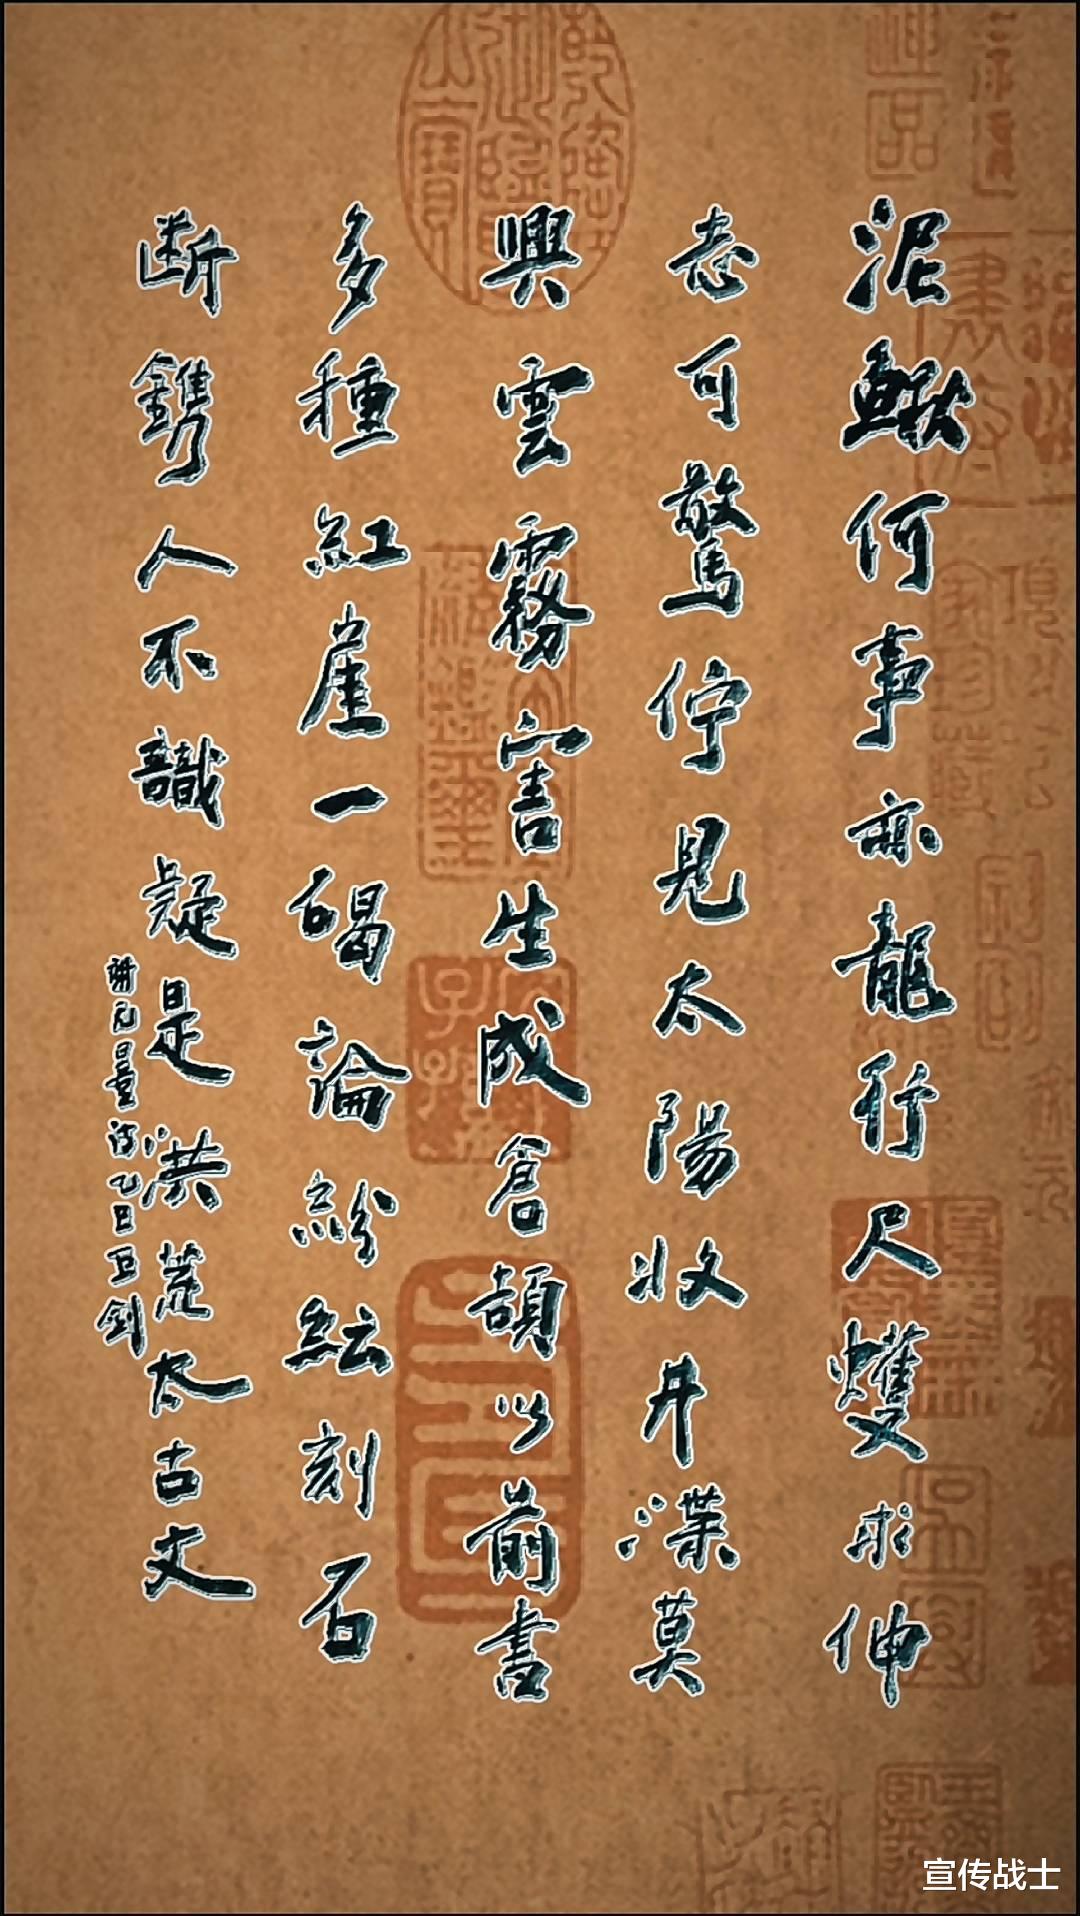 泥鳅何事亦龍行尺蠖求伸
志可驚佇見太陽收井渫莫
興雲霧害生成倉頡以前書
多種紅崖一碣論紛紜刻石
断鐫人不識疑是洪荒太古文
謝元量詩乙巳卫剑
宣传战士